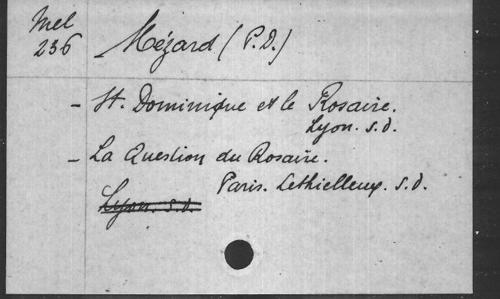 Mel
236
Mézard (P.D.)
- St. Dominique et le Rosaire.
Lyon. s.d.
- La Question du Rosaire.
Paris. Lethielleux. s.d.
Lyon. s.d.